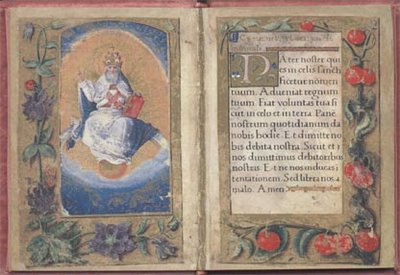 Pater noster qui
es in celis sancti
ficetur nomen
tuum. Adueniat regnum
tuum. Fiat voluntas tua si
cut in celo et in terra. Pane
nostrum quotidianum da
nobis hodie. Et dimitte no
bis debita nostra. Sicut et n
os dimittimus debitoribus
nostris. Et ne nos inducas i
tentationem. Sed libera nos a
malo. Amen